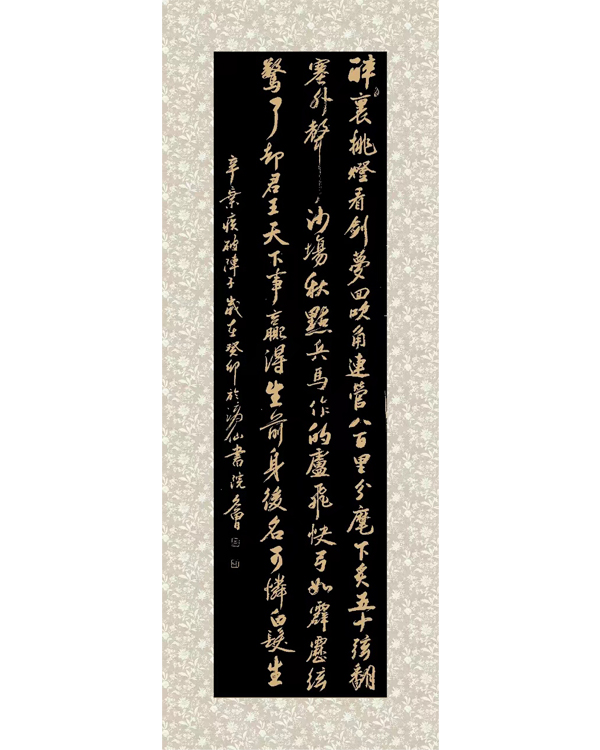 醉裏挑燈看劍夢回吹角連營八百里分麾下炙五十弦翻
塞外聲沙場秋點兵馬作的盧飛快弓如霹靂弦
驚了却君王天下事贏得生前身後名可憐白髮生
辛棄疾破陣子歲在癸卯於仙書院